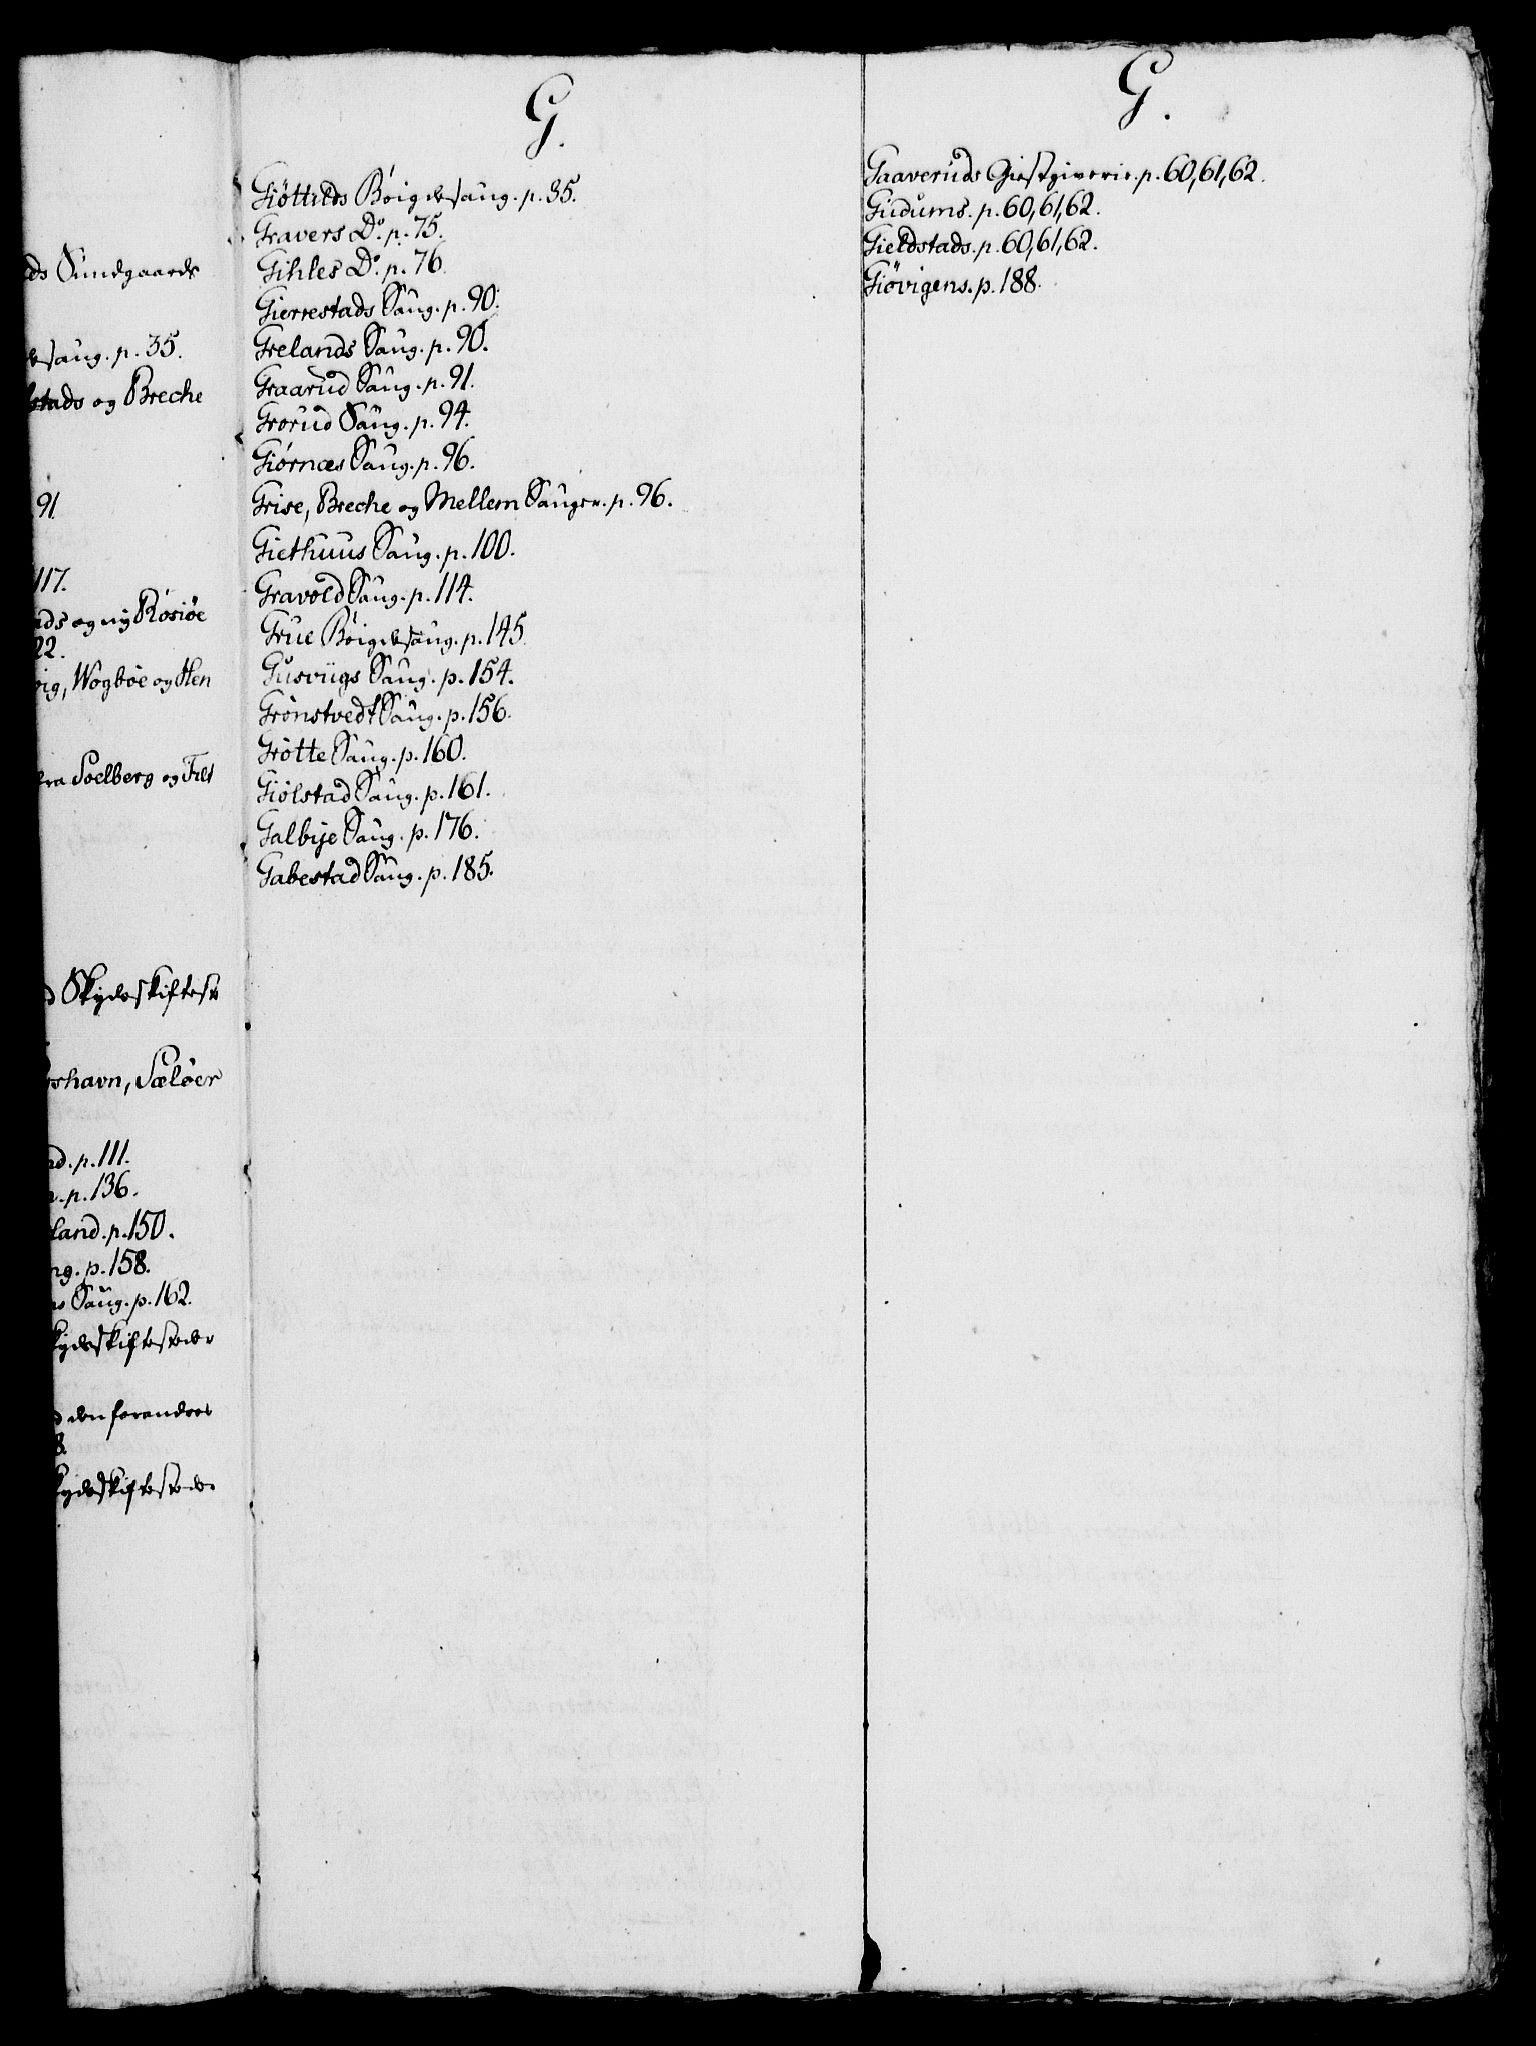 ds Sundgaards
desaug. p. 35.
stads og Breche
91
117.
ads og ny Rösiöe
22.
vig, Wogböe og Hen
dra Soelberg og Fils
d Skydsskifteste
shavn, Sælöer
nd. p. 111.
n. p. 136.
land. p. 150.
ng. p. 158.
ns Saug. p. 162.
kydsskiftesteder
d den forandret
8.
kydsskiftesteder
G.
Giöttilds Böigdesaug. p. 35.
Gravers Do. p. 75.
Gihles Do. p. 76.
Gierrestads Saug. p. 90.
Grelands Saug. p. 90.
Graarud Saug. p. 91.
Grorud Saug. p. 94.
Giörnæs Saug. p. 96.
Grise, Breche og Mellem Sauger. p. 96.
Giethuus Saug. p. 100.
Gravold Saug. p. 114.
Grue Böigdesaug. p. 145.
Gusviigs Saug. p. 154.
Grönstvedt Saug. p. 156.
Grötte Saug. p. 160.
Giölstad Saug. p. 161.
Galbye Saug. p. 176.
Gabestad Saug. p. 185.
G.
Gaaveruds Giestgiverie. p. 60, 61, 62.
Gudums. p. 60, 61, 62.
Gieldstads. p. 60, 61, 62.
Giövigens. p. 188.